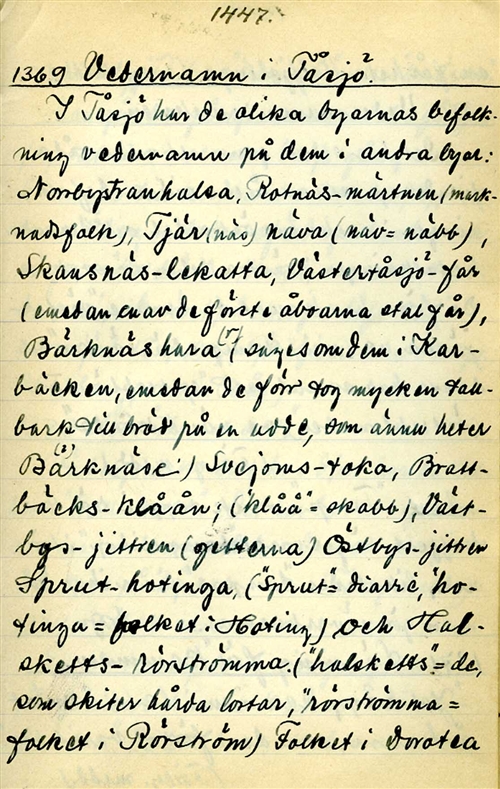 1447.
1369 Vedernamn i Tåsjö.
I Tåsjö har de olika byarnas befolk-
ning vedernamn på dem i andra byar:
Norrbytranhalsa, Rotnäs-mårtnen (mark-
nadsfolk), Tjär(näs) näva (näv= näbb),
Skansnäs-lekatta, Västertåsjö-får
(emedan en av de förste åboarna stal får),
Bärknäshara (?) (säges om dem i Kar-
bäcken, emedan de förr tog mycken tall-
bark till bröd på en udde, som ännu heter
Bärknäse!) Svejoms-toka, Bratt-
bäcks-klåån; ("klåå"= skabb), Väst-
bys-jittren (getterna) Östbys-jittren
Sprut-hotinga, ("Sprut"= diarré, "ho-
tinga = folket i Hoting) och Hal-
sketts-rörströmma. ("halsketts"= de,
som skiter hårda lortar, "rörströmma =
folket i Rörström) Folket i Dorotea